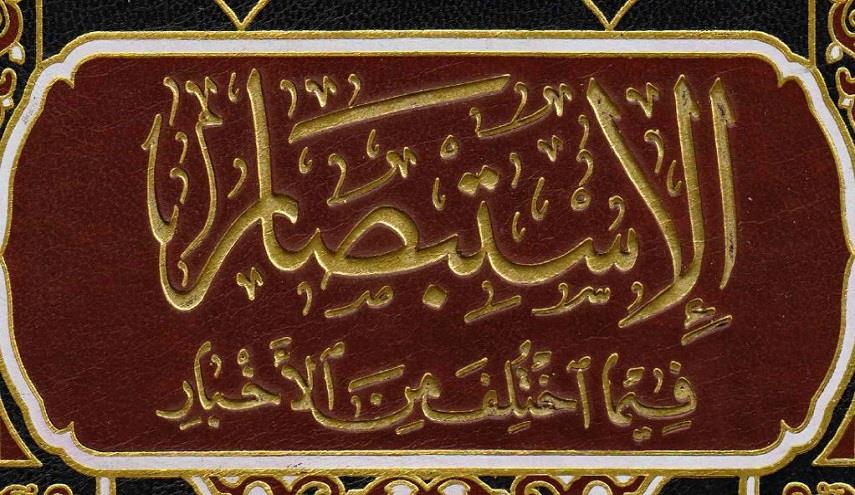 الإستبصار
فِيمَا ٱخْتُلِفَ مِنَ ٱلْأَخْبَارِ